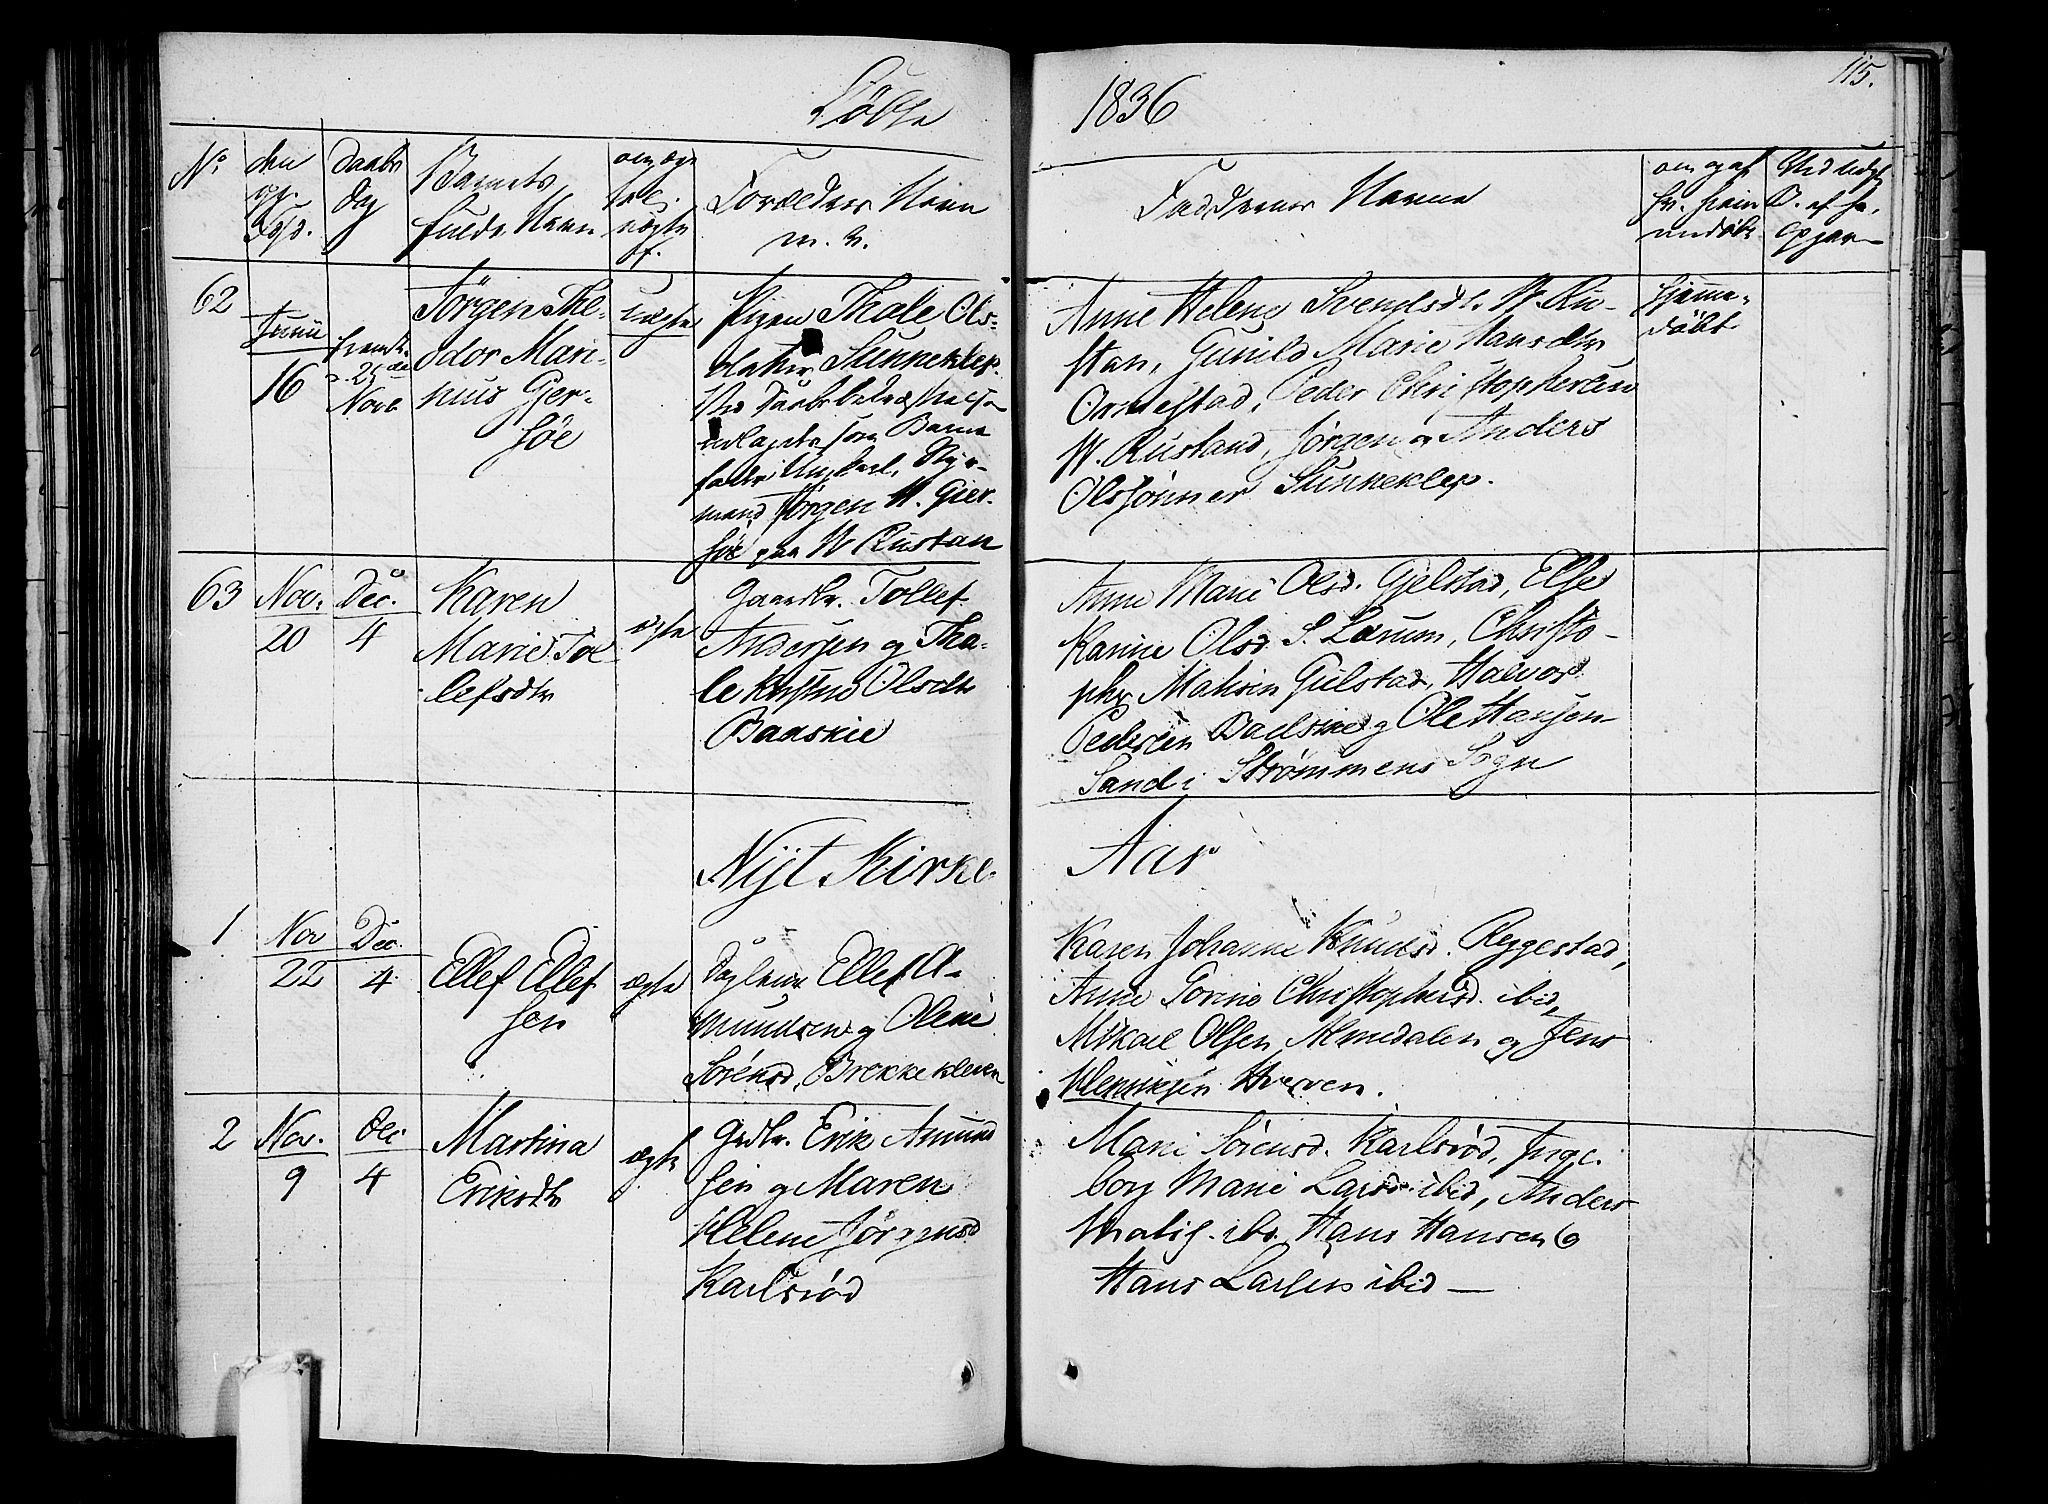 Döbte
1836
115.
No
den
Daabs
dag
Barnets
fulde Navn
om ægte
ell.
uægte
Forældres Navn
m. v.
Faddernes Navne
om
62
Junii
16
fremst.
d. 25de
Novb
Jörgen The-
odor Mari-
nus Gjer-
söe
uægte
Pigen Thale Ols-
datter Sunneklep.
Ved Daabsbekræftelsen
udlagdes som Barne
fader Ungkarl, Styr-
mand Jörgen H. Gjer-
söe paa W Rustan
Anne Helene Svendsdt. W. Ru-
stan, Gunild Marie Hansdtr
Ormestad, Peder Christophersen
W. Rustand, Jörgen og Anders
Olssönner Sunneklep.
hjemme-
döbt
63
Nov.
20
Dec.
4
Karen
Marie Tol-
lefsdtr
ægte
Gaardbr. Tollef
Andersen og Tha-
le Kirstine Olsdtr
Baaskie
Anne Marie Olsd. Gjelstad, Else
Karine Olsd. S. Lørum, Christo-
pher Madsen Gulstad, Halvor
Pedersen Baaskie og Ole Hansen
Sand i Strömmens Sogn
Nyt Kirke-
Aar
1
Nov
22
Dec.
4
Ellef Ellef
sen
ægte
Daglejer Ellef A-
mundsen og Olene
Sörensd. Brekkekleven
Karen Johanne Knudsd. Ryggestad,
Anne Torine Christophersd. ibid,
Mikael Olsen Almedalen og Jens
Henriksen Hverven.
2
Nov.
9
Dec
4
Martina
Eriksdtr
ægte
Grdbr. Erik Amund
sen og Maren
Helene Jörgensd
Karlsröd
Marie Sörensd. Karlsröd, Inge-
borg Marie Larsd. ibid, Anders
ibd. Hans Hansen og
Hans Larsen ibid —